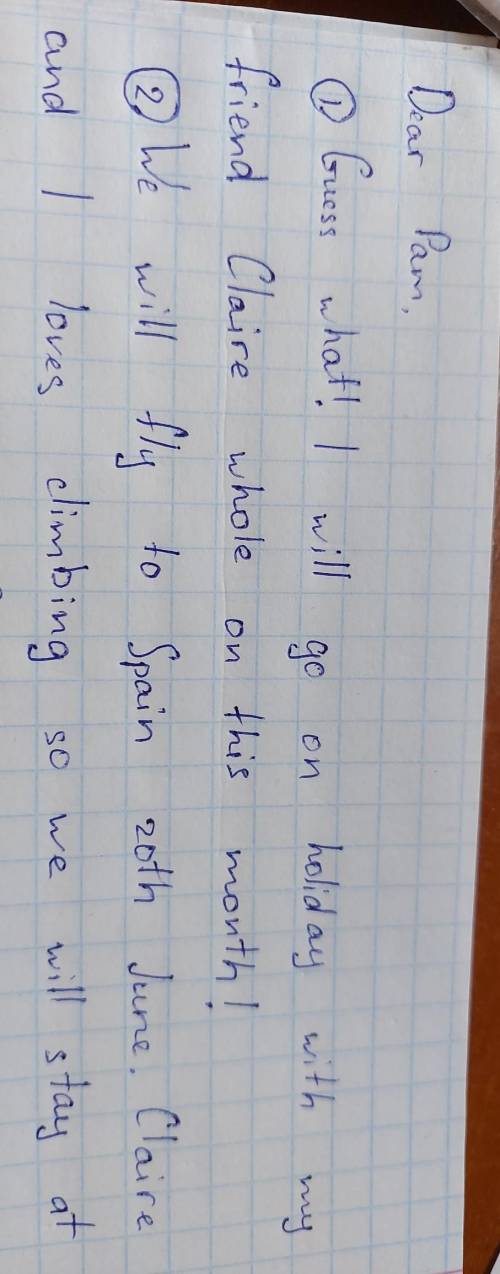 Dear Pam,
① Guess what! I will go on holiday with my
friend Claire whole on this month!
② We will fly to Spain 20th June. Claire
and I loves climbing so we will stay at